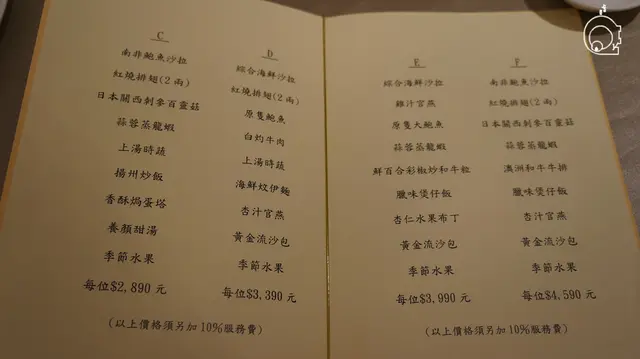 C
南非鮑魚沙拉
紅燒排翅(2兩)
日本關西刺參百靈菇
蒜蓉蒸龍蝦
上湯時蔬
揚州炒飯
香酥焗蛋塔
養顏甜湯
季節水果
每位$2,890元
D
綜合海鮮沙拉
紅燒排翅(2兩)
原隻鮑魚
白灼牛肉
上湯時蔬
海鮮炆伊麵
杏汁官燕
黃金流沙包
季節水果
每位$3,390元
(以上價格須另加10%服務費)
E
綜合海鮮沙拉
雞汁官燕
原隻大鮑魚
蒜蓉蒸龍蝦
鮮百合彩椒炒和牛粒
臘味煲仔飯
杏仁水果布丁
黃金流沙包
季節水果
每位$3,990元
F
南非鮑魚沙拉
紅燒排翅(2兩)
日本關西刺參百靈菇
蒜蓉蒸龍蝦
澳洲和牛牛排
臘味煲仔飯
杏汁官燕
黃金流沙包
季節水果
每位$4,590元
(以上價格須另加10%服務費)